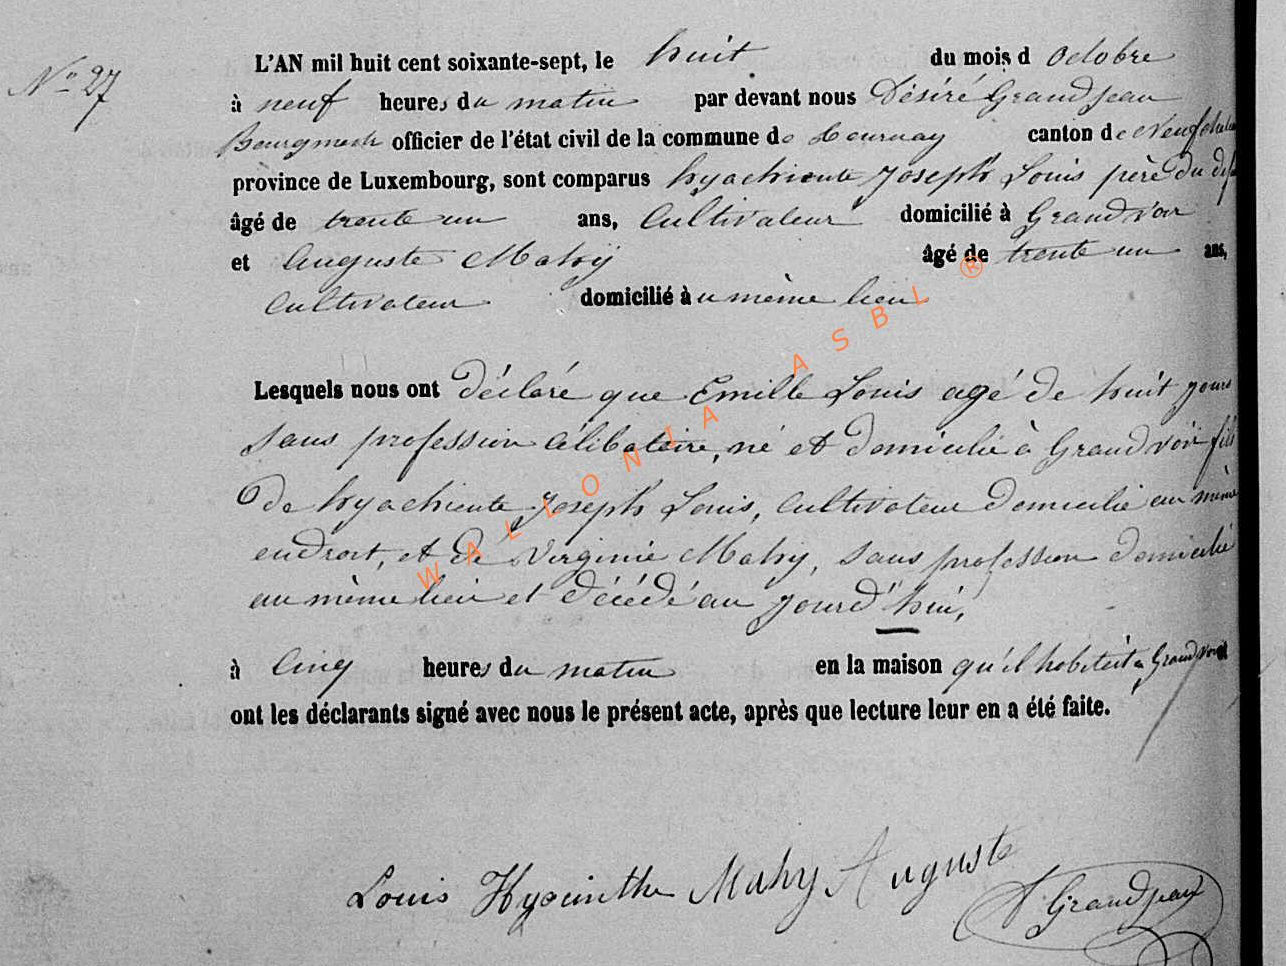 No 27
L'AN mil huit cent soixante-sept, le huit du mois d octobre
à neuf heures du matin par devant nous Désiré Grandjean
Bourgmestre officier de l'état civil de la commune de Tournay canton de Neufchateau
province de Luxembourg, sont comparus hyachiente Joseph Louis père du def
âgé de trente un ans, Cultivateur domicilié à Grandvoir
et Auguste Mahy âgé de trente un ans,
Cultivateur domicilié àu même lieu
Lesquels nous ont déclaré que Emille Louis agé de huit jours
sans profession célibataire, né et domicilié à Grandvoir fils
de hyachiente Joseph Louis, Cultivateur domicilié au même
endroit, et de Virginie Mahy, sans profession domicilié
au même lieu et décédé au jourd'hui,
à Cinq heures du matin en la maison qu'il habitait à Grandvoir
ont les déclarants signé avec nous le présent acte, après que lecture leur en a été faite.
Louis Hyacinthe Mahy Auguste
Grandjean
WALLONIA ASBL ®